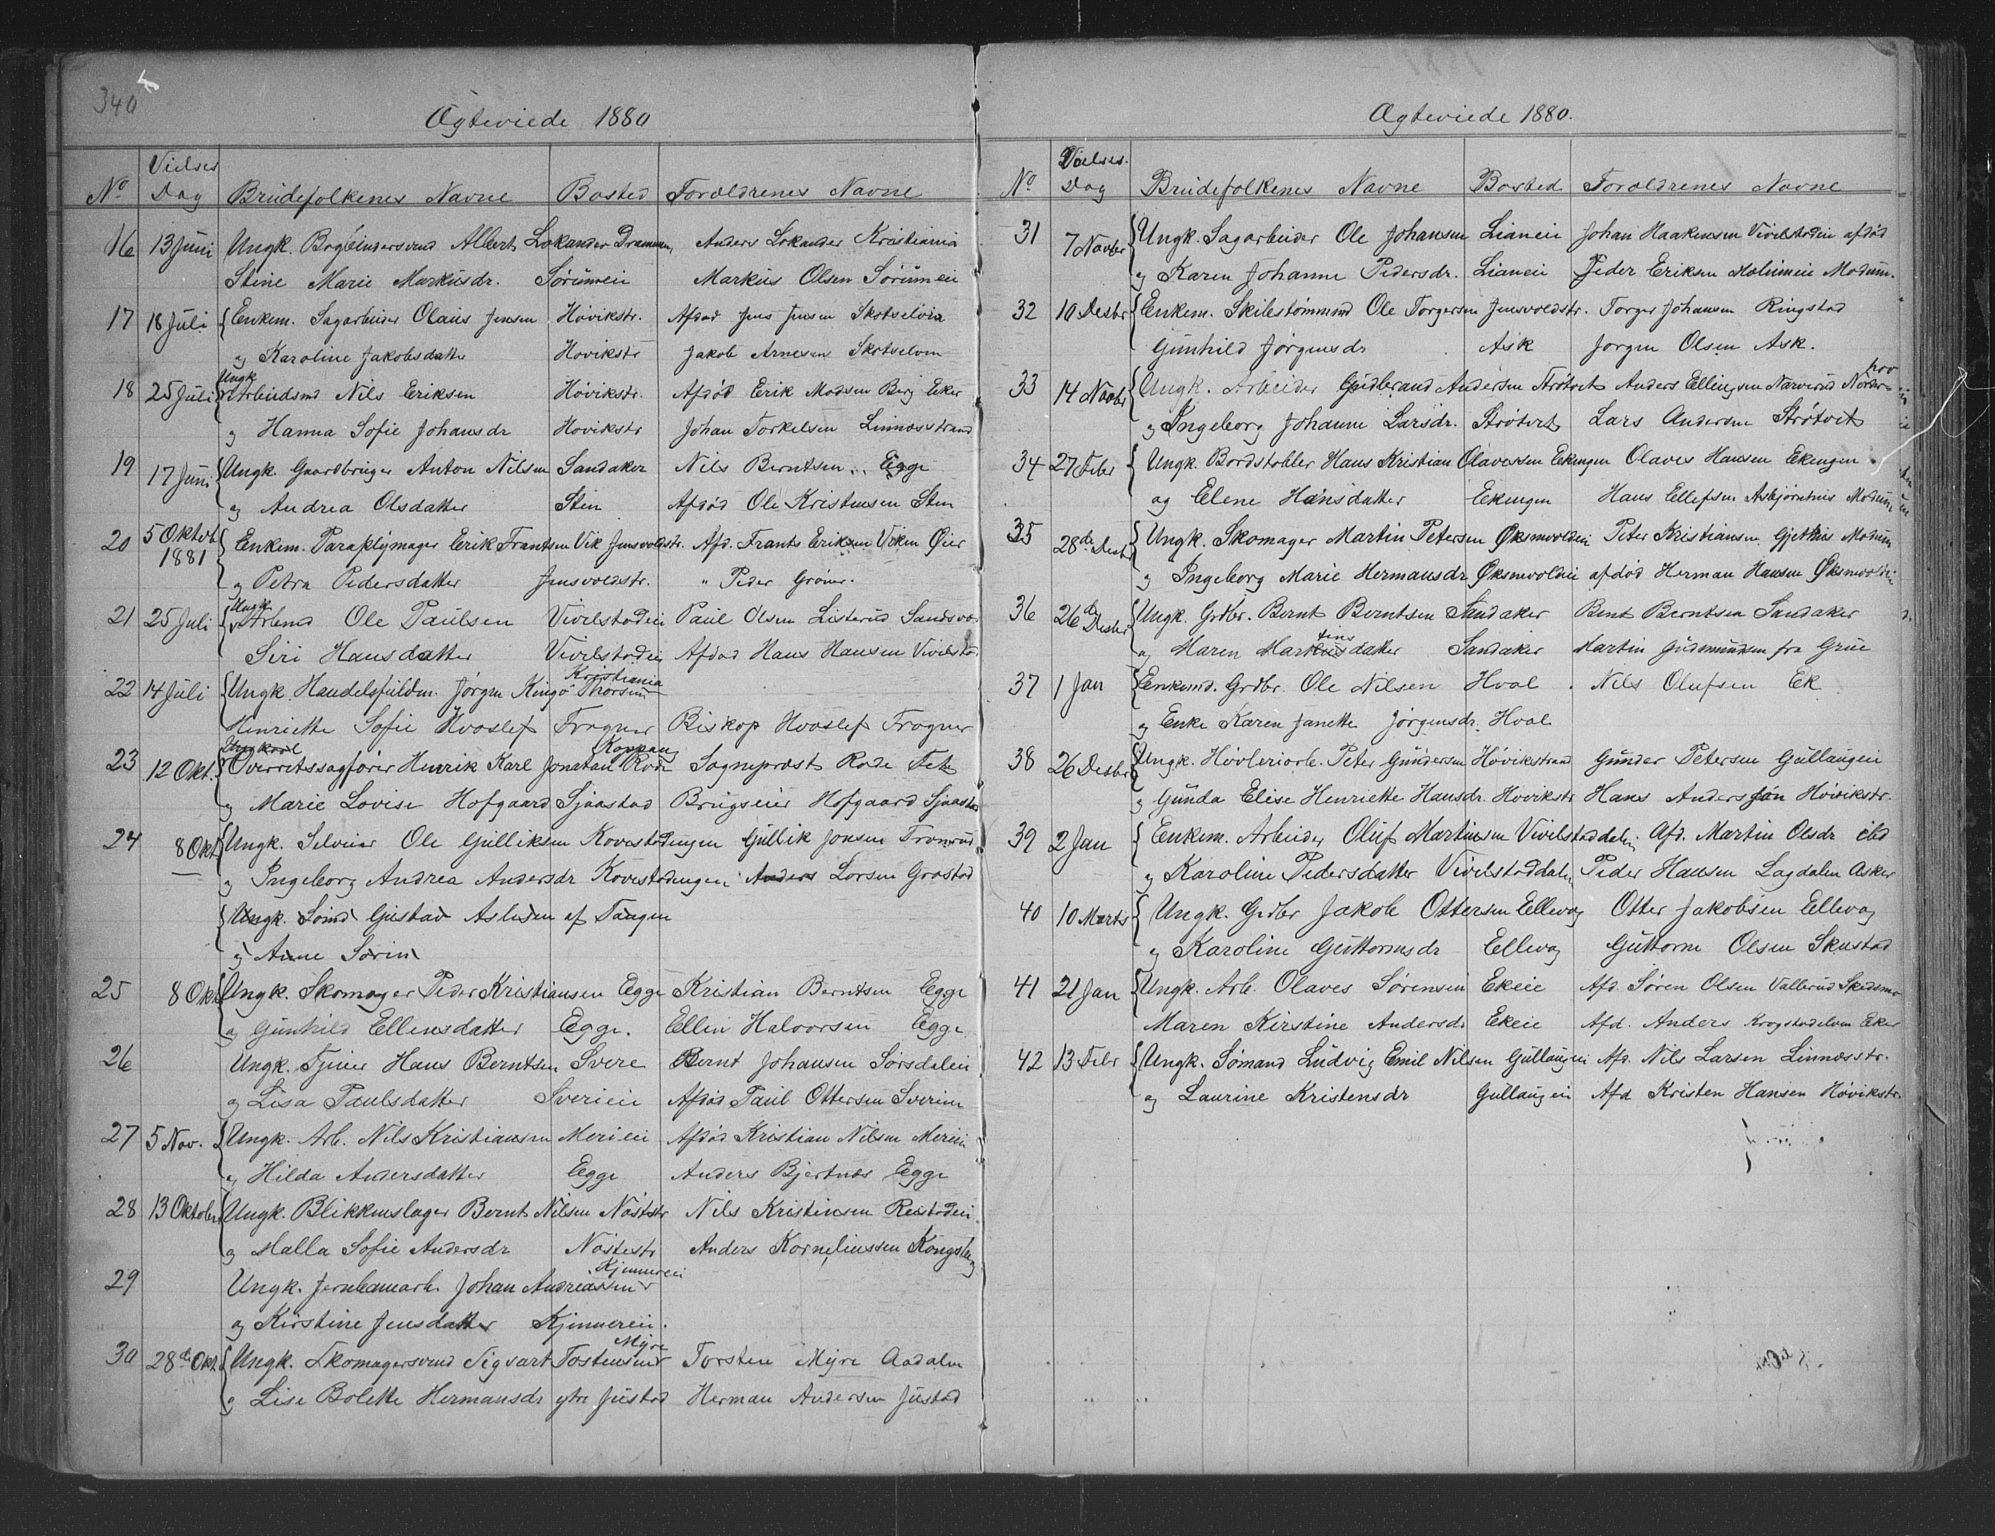 340
Ægteviede 1880
No Vielses Dag Brudefolkenes Navne Bosted Forældrenes Navne
16 13 Juni Ungk. Bogbindersvend Albert Lokander Drammen, Anders Lokander Kristiania
Stine Marie Markusdr. Sørumeie Markus Olsen Sørumeie
17 18 Juli Enkem. Sagarbeider Olaus Jensen Høvikstr. Afdød Jens Jensen Skotselven
og Karoline Jakobsdatter Høvikstr Jakob Arnesen Skotselven
18 25 Juli Ungk Arbeidsmd Nils Eriksen Høvikstr. Afdød Erik Madsen Berg Eker
og Hanna Sofie Johansdr Høvikstr Johan Torkelsen Linnesstrand
19 17 Juni Ungk. Gaardbruger Anton Nilsen Sandaker Nils Berntsen Egge
og Andrea Olsdatter Sten Afdød Ole Kristensen Sten
20 5 Oktob. 1881 Enkem. Paraplymager Erik Frantsen Vik Jensvoldstr. Afd. Frants Eriksen Viken Øier
og Petra Pedersdatter Jensvoldstr. " Peder Grøner.
21 25 Juli Ungk Arbmd Ole Paulsen Vivelstadeie Paul Olsen Listerud Sandsvær
Siri Hansdatter Vivelstadeie Afdød Hans Hansen Vivelst.
22 14 Juli Ungk. Handelsfuldm. Jørgen Kingo Thorsen Kristiania
Henriette Sofie Hvoslef Frogner Biskop Hvoslef Frogner
23 12 Okt. Ungkarl Overretssagfører Henrik Karl Jonatan Rode Koppang Sogneprest Rode Fet
og Marie Lovise Hofgaard Sjaastad Brugseier Hofgaard Sjaastad
24 8 Okt Ungk. Selveier Ole Gulliksen Kovestadengen Gullik Jonsen Tronrud
og Ingeborg Andrea Andersdr Kovestadengen Anders Larsen Grøstad
Ungk. Sømd Gustav Aslesen af Tangen
og Anne Sørin
25 8 Okt Ungk. Skomager Peder Kristiansen Egge Kristian Berntsen Egge
og Gunhild Ellensdatter Egge. Ellin Halvorsen Egge
26 Ungk. Tjener Hans Berntsen Svere Bernt Johansen Sørsdalen
og Lisa Paulsdatter Svereie Afdød Paul Ottersen Svereie
27 5 Nov. Ungk. Arb. Nils Kristiansen Merieie Afdød Kristian Nilsen Merieie
og Hilda Andersdatter Egge Anders Bjertnæs Egge
28 13 Oktober Ungk. Blikkenslager Bernt Nilsen Nøstestr Nils Kristensen Reistadeie
og Malla Sofie Andersdr Nøstestr Anders Korneliussen Kongsberg
29 Ungk. Jernbanearb. Johan Andreassen Kjennereie
og Kirstine Jensdatter Kjennereie.
30 28de Okt. Ungk. Skomagersvend Sigvart Tostensen Myre Torsten Myre Aadalen
og Lise Bolette Hermansdr ytre Justad Herman Andersen Justad
Ægteviede 1880.
No Vielses. Dag Brudefolkenes Navne Bosted Forældrenes Navne
31 7 Novber Ungk. Sagarbeider Ole Johansen Lianeie Johan Haakensen Vivelstadeie afdød
og Karen Johanne Pedersdr. Lianeie Peder Eriksen Holumeie Modum.
32 10 Desbr Enkem. Skibstømmmd Ole Torgersen Jensvoldstr. Torger Johansen Ringstad
Gunhild Jørgensdr Ask Jørgen Olsen Ask.
33 14 Novbr Ungk. Arbeider Gudbrand Andersen Strøtvet Anders Ellingsen Narverud Norderhov
og Ingeborg Johanne Larsdr. Strøtvet Lars Andersen Strøtvet
34 27 Febr Ungk. Bordstabler Hans Kristian Olavesen Ekengen Olaves Hansen Ekengen
og Elene Hansdatter Ekengen Hans Ellefsen Askjørnhus Modum
35 28de Desbr Ungk. Skomager Martin Petersen Øksnevoldeie Peter Kristiansen Gjethus Modum
og Ingeborg Marie Hermansdr Øksnevoldeie afdød Herman Hansen Øksnevoldeie
36 26de Desbr Ungk. Grdbr. Bernt Berntsen Sandaker Bent Berntsen Sandaker
og Maren Martensdatter Sandaker Martin Gudmundsen fra Grue
37 1 Jan Enkemd. Grdbr. Ole Nilsen Hval Nils Olufsen Ek
og Enke Karen Janette Jørgensdr. Hval
38 26 Desbr Ungk. Høvleriarb. Peter Gundersen Høvikstrand Gunder Petersen Gullaugeie
og Gunda Elise Henriette Hansdr. Høvikstr Hans Andersson Høvikstr.
39 2 Jan Enkem. Arbeider Oluf Martinsen Vivelstaddalen Afd. Martin Olsdr ibd
og Karoline Pedersdatter Vivelstaddalen Peder Hansen Lagdalen Asker
40 10 Marts Ungk. Grdbr Jakob Ottersen Ellevog Otter Jakobsen Ellevog
og Karoline Guttormsdr Ellevog Guttorm Olsen Skustad
41 21 Jan Ungk. Arb. Olaves Sørensen Ekeie Afd. Søren Olsen Vallerud Skedsmo
Maren Kirstine Andersdr Ekeie Afd. Anders Krogstadelven Eker
42 13 Febr Ungk. Sømand Ludvig Emil Nilsen Gullaugeie Afd. Nils Larsen Linnesstr.
og Laurine Kristensdr Gullaugeie Afd Kristen Hansen Høvikstr.